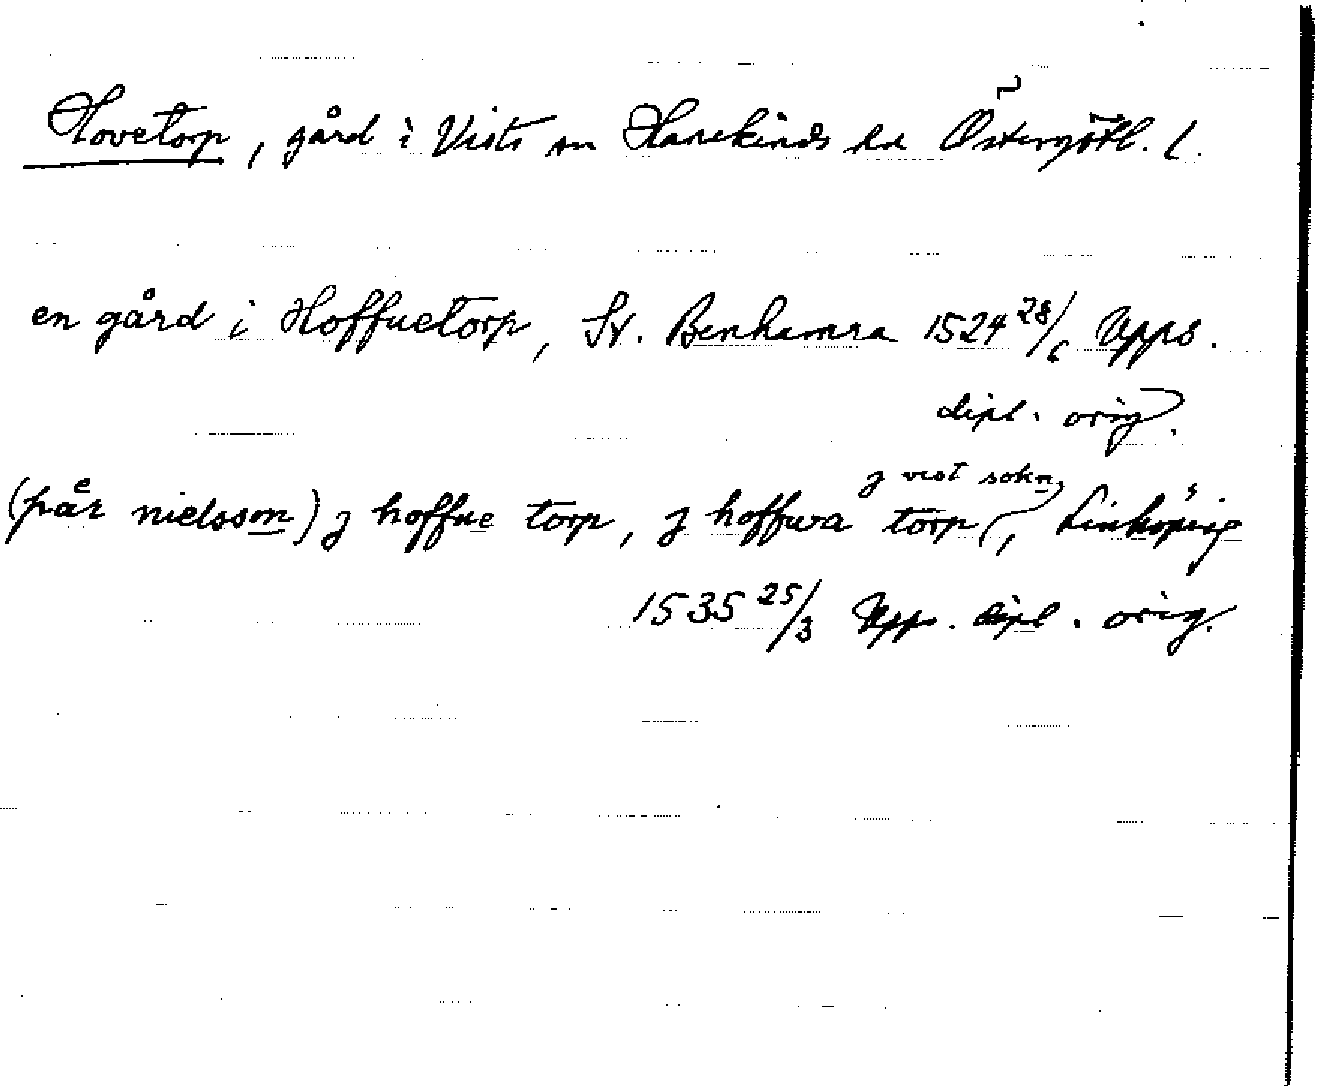 Hovetorp, gård i Vists sn Hanekinds hd Östergötl. l.
en gård i Hoffuetorp, St. Benhamra 1524 28/6 Upps.
dipl. orig.
j vist sokn
(pår nielsson) j hoffue torp, j hoffwa torp, Linköping
1535 25/3 Upps. dipl. orig.